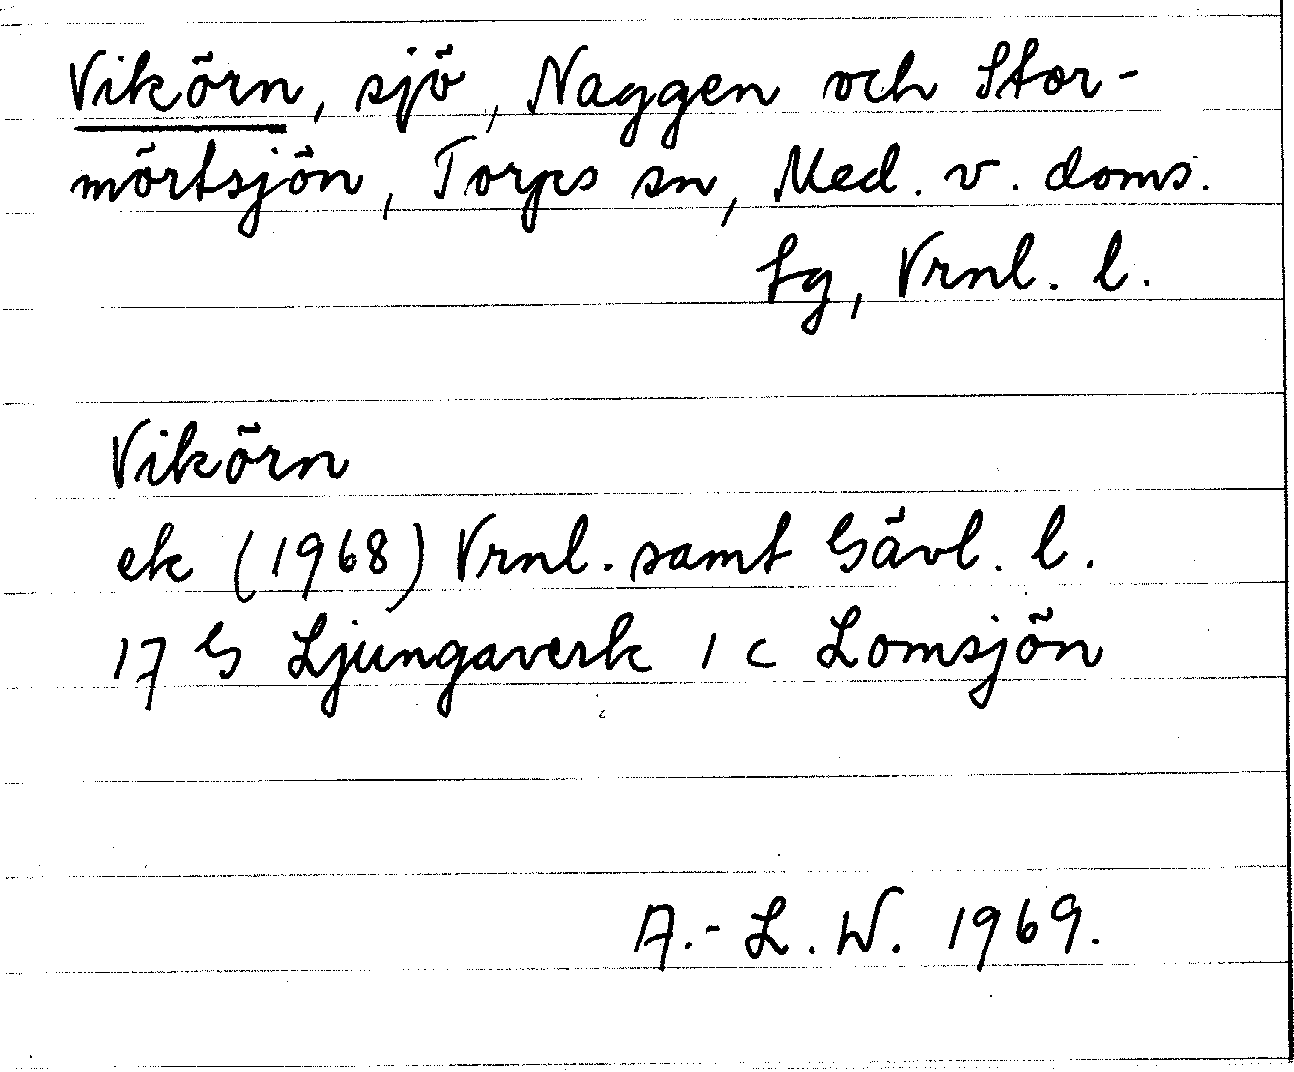 Vikörn, sjö, Naggen och Stor-
mörtsjön, Torps sn, Med. v. doms.
sg, Vrnl. l.
Vikörn
ek (1968) Vrnl. samt Gävl. l.
17 G Ljungaverk 1 c Lomsjön
A.-L. W. 1969.